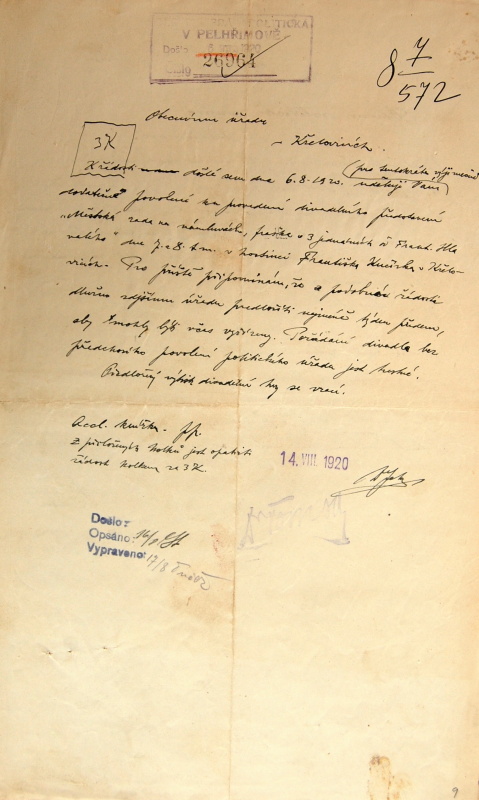 POLITICKÁ
V PELHŘIMOVĚ
Došlo
26964
8 7/572
Obecnímu úřadu
v Křelovicích.
3K
K žádosti došlé sem dne 6.8.1920. uděluji Vám
(pro tentokráte výjimečně)
dodatečně povolení ku provedení divadelního představení
„Městská rada na námluvách, fraška o 3 jednáních od Frant. Hla
vatého" dne 7. a 8. t.m. v hostinci Františka Kučírka v Křelo-
vicích. Pro příště připomínám, že podobné žádosti
dlužno zdejšímu úřadu předložiti nejméně týden předem,
aby mohly býti včas vyřízeny. Pořádání divadla bez
předchozího povolení politického úřadu jest trestné.
Předložený výtisk divadelní hry se vrací.
Z přiložených kolků jest opatřiti
žádost kolkem za 3K.
14. VIII. 1920
Došlo:
Opsáno: 16/8
Vypraveno: 17/8
9